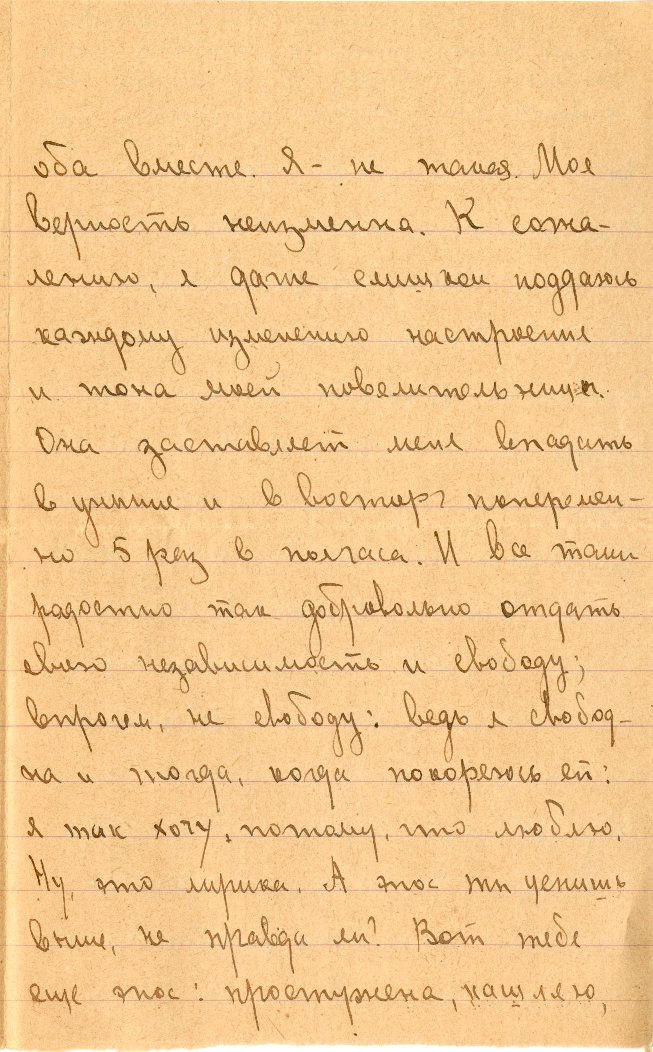 оба вместе. Я – не такая. Моя
верность неизменна. К сожа-
лению, я даже слишком поддаюсь
каждому изменению настроения
и тона моей повелительницы.
Она заставляет меня впадать
в уныние и в восторг поперемен-
но 5 раз в полчаса. И все таки
радостно так добровольно отдать
свою независимость и свободу;
впрочем, не свободу: ведь я свобод-
на и тогда, когда покоряюсь ей:
я так хочу, потому, что люблю.
Ну, это лирика. А эпос ты ценишь
выше, не правда ли? Вот тебе
еще эпос: простужена, кашляю,